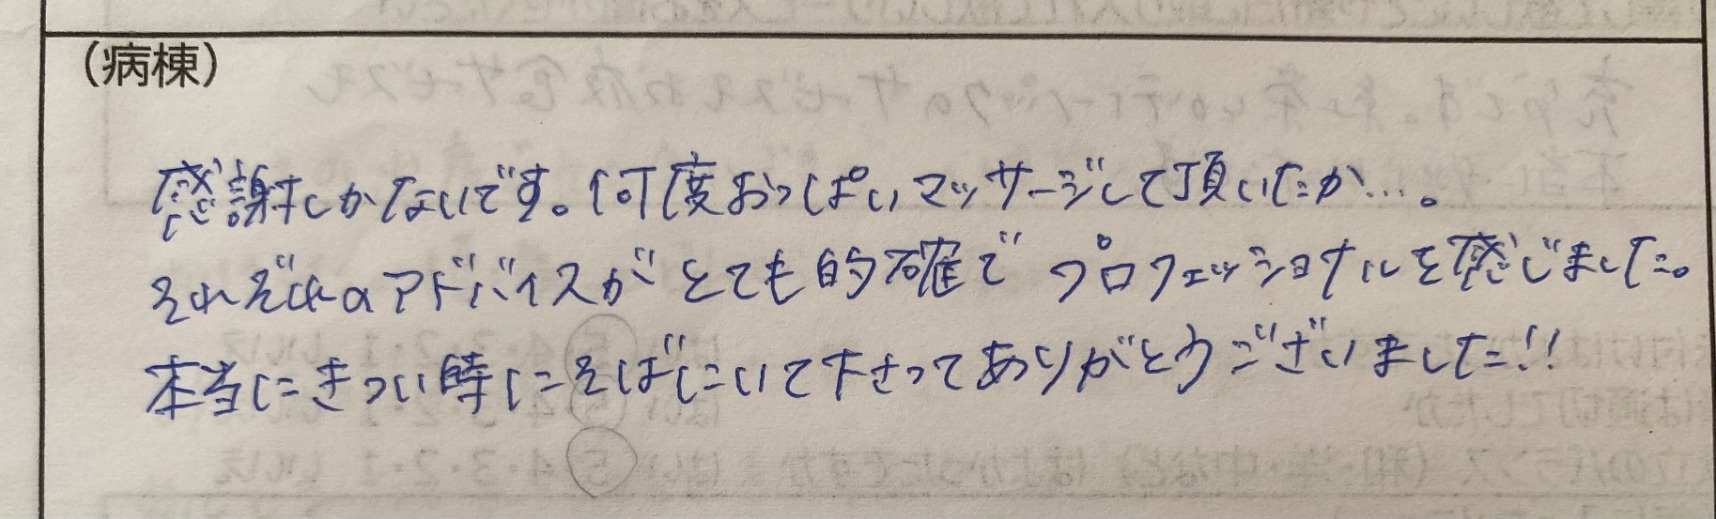 （病棟）
感謝しかないです。何度おっぱいマッサージして頂いたか…。
それぞれのアドバイスがとても的確で プロフェッショナルを感じました。
本当にきつい時にそばにいて下さってありがとうございました!!